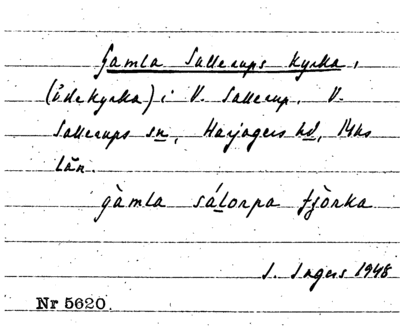 Gamla Sallerups kyrka,
(ödekyrka) i V. Sallerup. V.
Sallerups sn, Harjagers hd, Mhs
län.
gàmla sálorpa tjörka
S. Ingers 1948
Nr 5620.